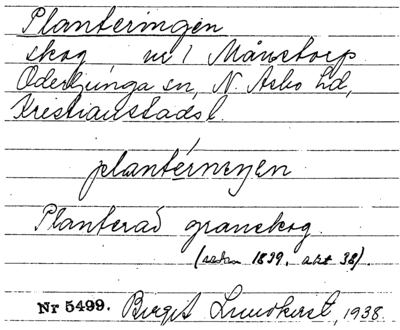 Planteringen
skog nr 1 Månstorp
Oderljunga sn, N. Åsbo hd,
Kristianstads l.
plantéringen
Planterad granskog.
(sedan 1839, akt 38).
Nr 5499. Birgit Lundkvist, 1938.